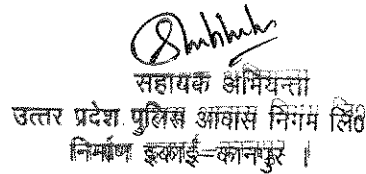 सहायक अभियन्ता
उत्तर प्रदेश पुलिस आवास निगम लि0
निर्माण इकाई-कानपुर ।